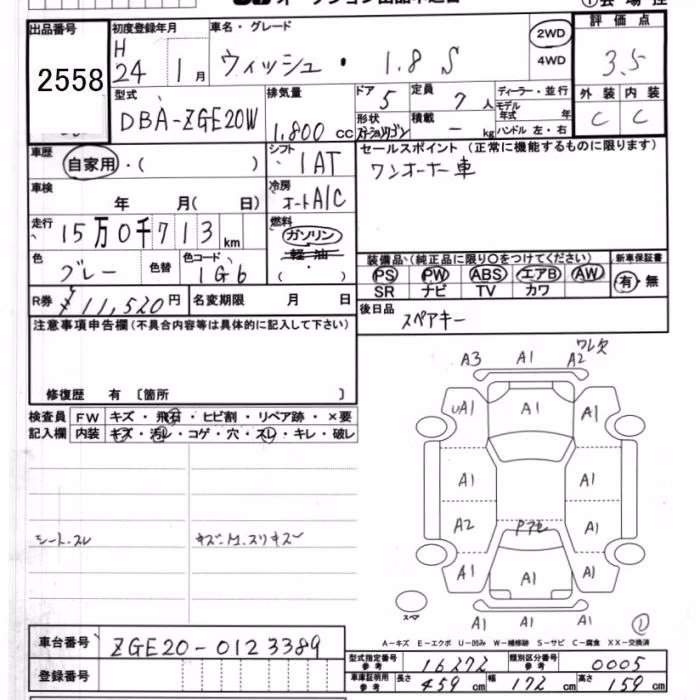 オークション出品申込書
①会場控
出品番号 初度登録年月 車名・グレード 評価点
2558 H 24 1月 ウィッシュ・ 1.8 S 2WD 4WD 3.5
型式 排気量 ドア 5 定員 7人 ディーラー・並行 外装 内装
DBA-ZGE20W 1,800cc 形状 ステーションワゴン 積載 - kg モデル年式 年 ハンドル 左・右 C C
車歴 自家用・( ) シフト 1AT セールスポイント (正常に機能するものに限ります)
ワンオーナー車
車検 年 月( 日) 冷房 オートA/C
走行 15万0千713km 燃料 ガソリン
軽油・
( )
色 グレー 色替 色コード 1G6 装備品(純正品に限り○をつけてください) 新車保証書
PS PW ABS エアB AW 有・無
SR ナビ TV カワ
R券 ¥11,520円 名変期限 月 日 後日品
スペアキー
注意事項申告欄(不具合内容等は具体的に記入して下さい)
修復歴 有〔箇所 〕
検査員 FW キズ・飛石・ヒビ割・リペア跡・×要
記入欄 内装 キズ・汚れ・コゲ・穴・スレ・キレ・破レ
シート.スレ
ワレ欠
A3 A1 A2
UA1 A1 A1
A1 A1
A2 A1
A1 A1 A1
A1 A1 A1
スペア
①
A-キズ E-エクボ U-凹み W-補修跡 S-サビ C-腐食 XX-交換済
車台番号 ZGE20-0123389
登録番号
型式指定番号 参考 16272 類別区分番号 参考 0005
車庫証明用 参考 長さ 459cm 幅 172cm 高さ 159cm